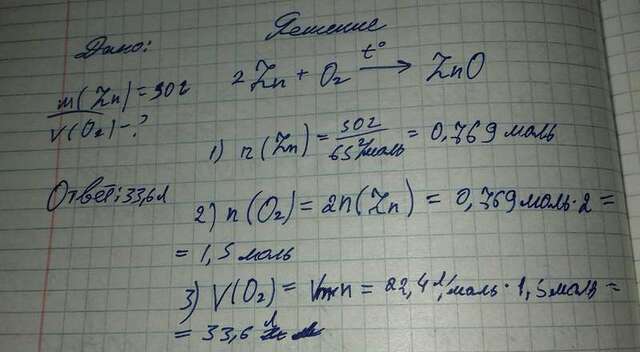 Решение
Дано:
m(Zn)=50г
V(O₂)-?
Ответ: 33,6л
2Zn + O₂ →t° ZnO
1) n(Zn) = 50г / 65г/моль = 0,769 моль
2) n(O₂) = 2n(Zn) = 0,769 моль·2 =
= 1,5 моль
3) V(O₂) = Vm·n = 22,4 л/моль · 1,5 моль =
= 33,6 л